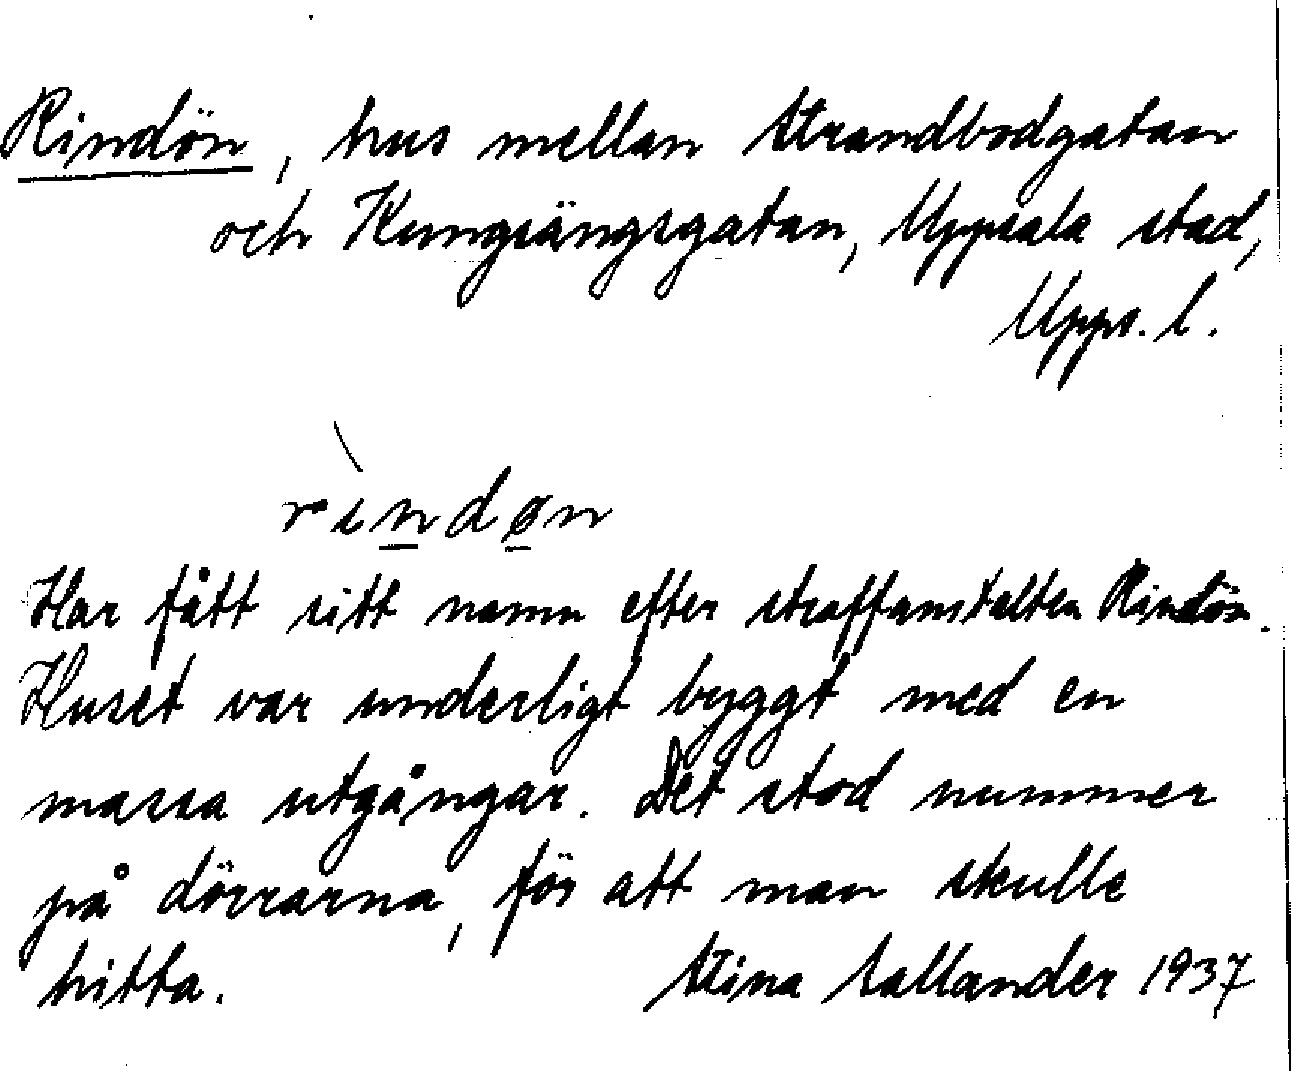 Rindön, hus mellan Strandbodgatan
och Kungsängsgatan, Uppsala stad,
Upps. l.
rìndøn
Har fått sitt namn efter straffanstalten Rindön.
Huset var underligt byggt med en
massa utgångar. Det stod nummer
på dörrarna, för att man skulle
hitta. Stina Sallander 1937